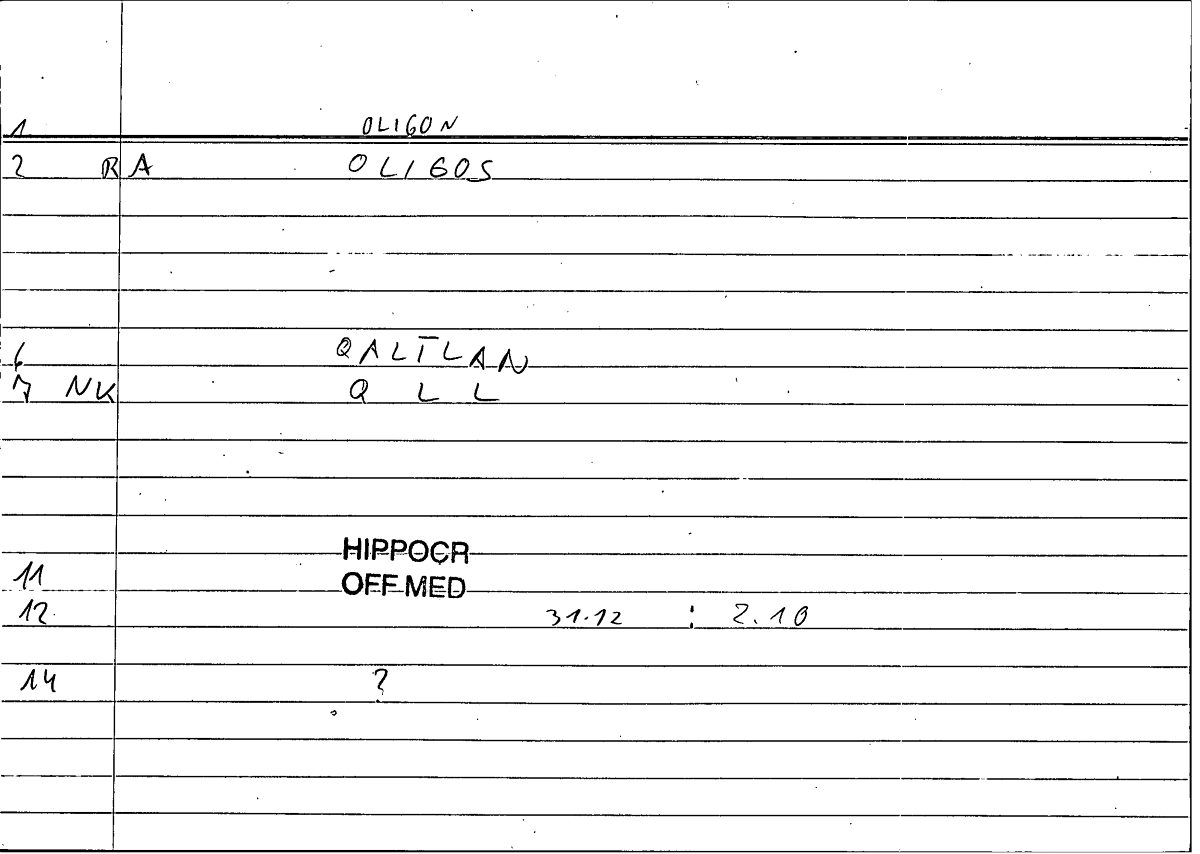 1 OLIGON
2 RA OLIGOS
6 QALĪLAN
7 NK Q L L
HIPPOCR
11 OFF MED
12 31.12 : 2.10
14 ?